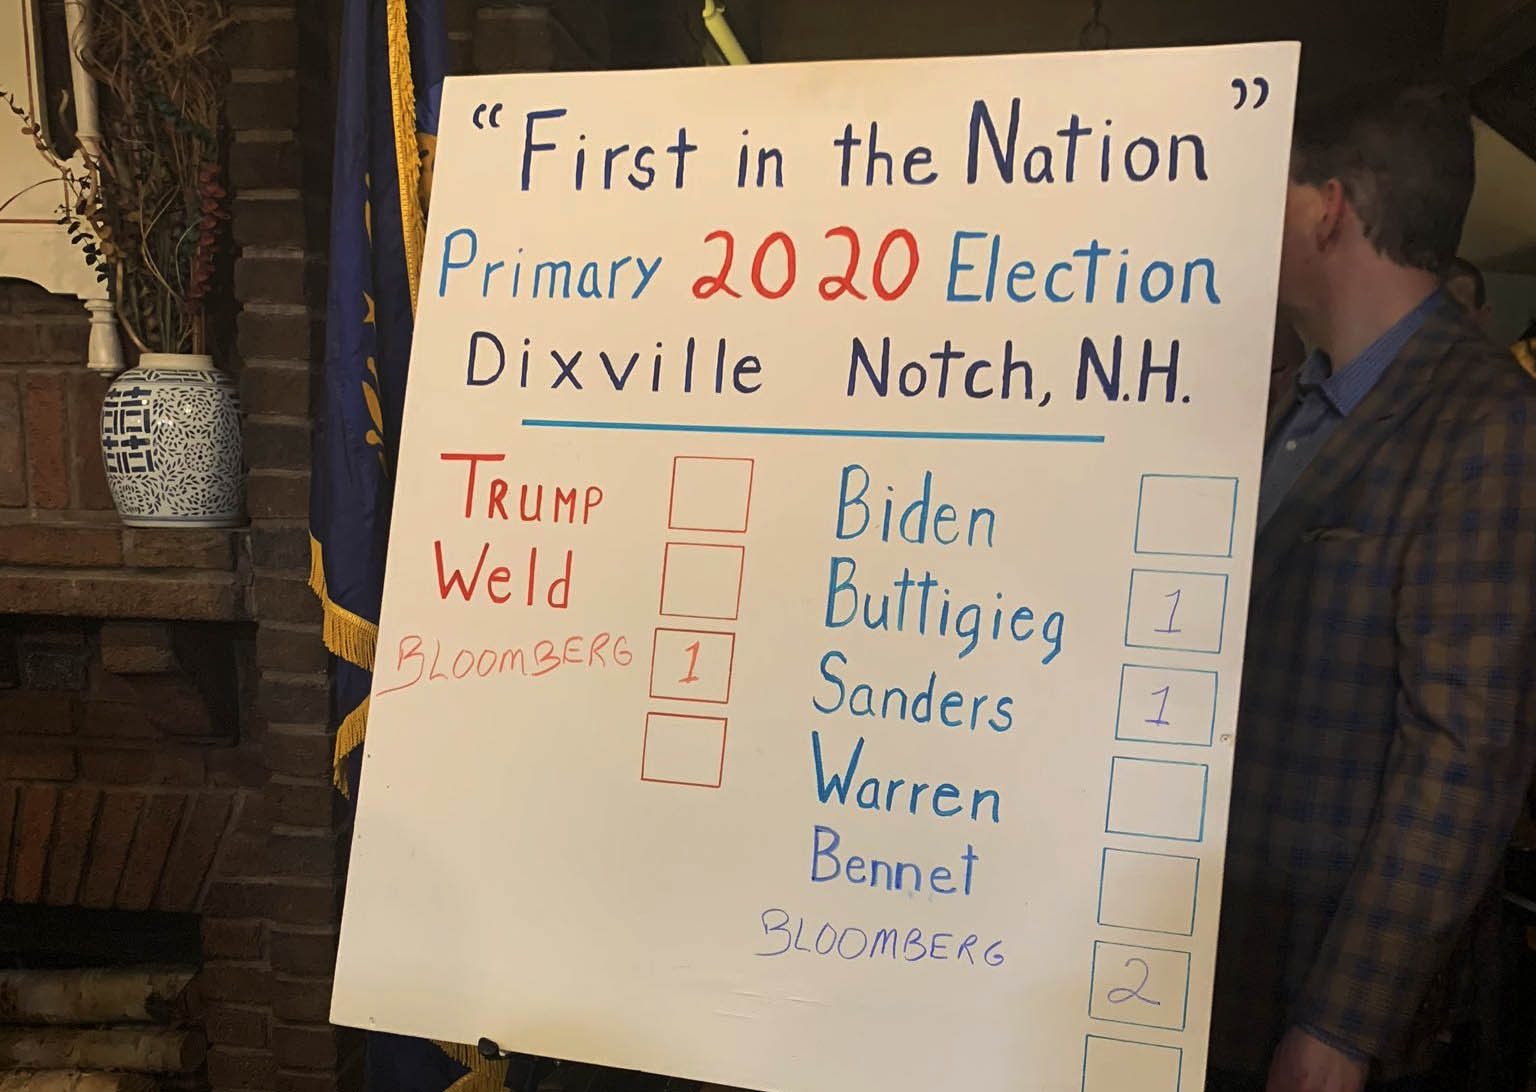 “First in the Nation”
Primary 2020 Election
Dixville Notch, N.H.
TRUMP
Weld
BLOOMBERG 1
Biden
Buttigieg 1
Sanders 1
Warren
Bennet
BLOOMBERG 2